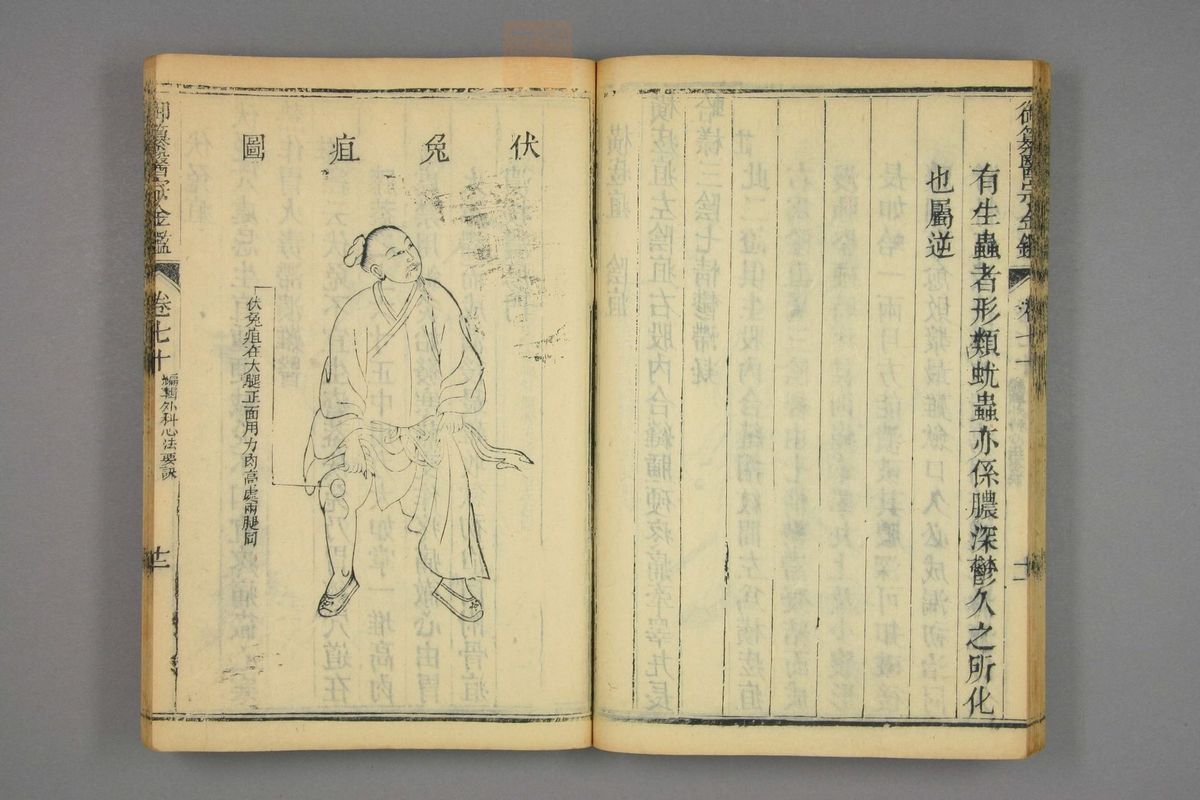 御纂醫宗金鑑
卷七十
十一
有生蟲者形類蚘蟲亦係膿深鬱久之所化
也屬逆
伏兔疽圖
伏兔疽在大腿正面用力肉高處兩腿同
御纂醫宗金鑑
卷七十
編輯外科心法要訣
十二